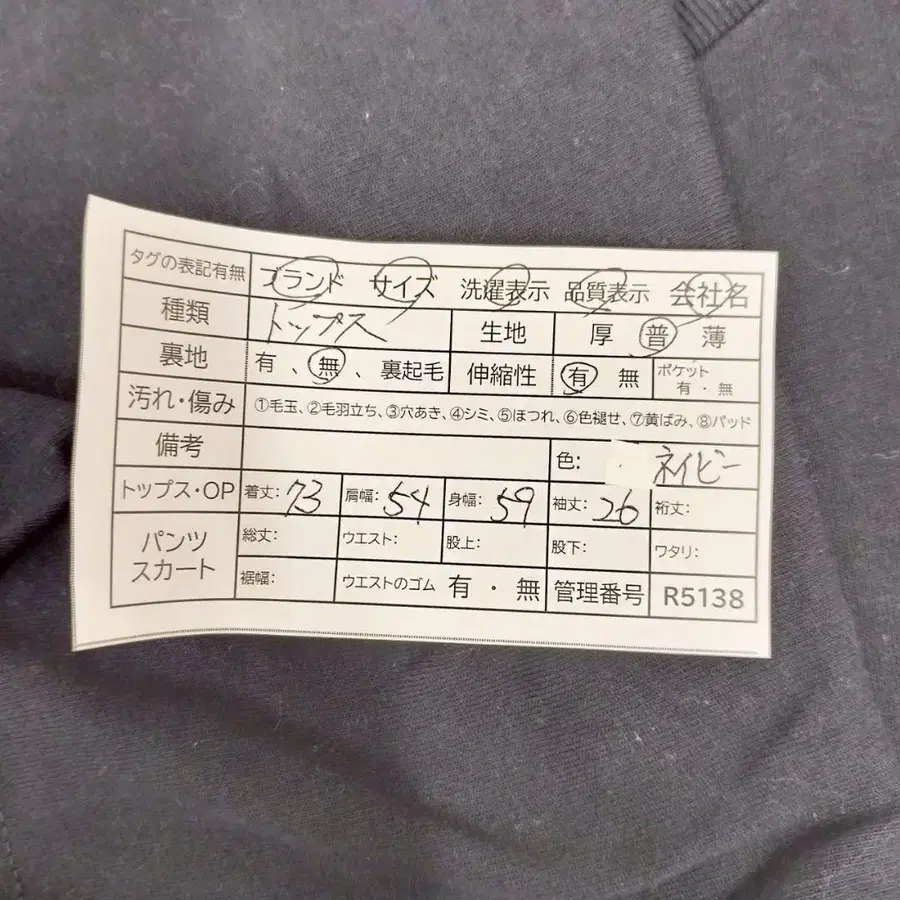 タグの表記有無 ブランド サイズ 洗濯表示 品質表示 会社名
種類 トップス 生地 厚 普 薄
裏地 有 、 無 、 裏起毛 伸縮性 有 無 ポケット 有・無
汚れ・傷み ①毛玉、②毛羽立ち、③穴あき、④シミ、⑤ほつれ、⑥色褪せ、⑦黄ばみ、⑧パッド
備考 色: ネイビー
トップス・OP 着丈: 73 肩幅: 54 身幅: 59 袖丈: 26 裄丈:
パンツ スカート 総丈: ウエスト: 股上: 股下: ワタリ:
裾幅: ウエストのゴム 有 ・ 無 管理番号 R5138